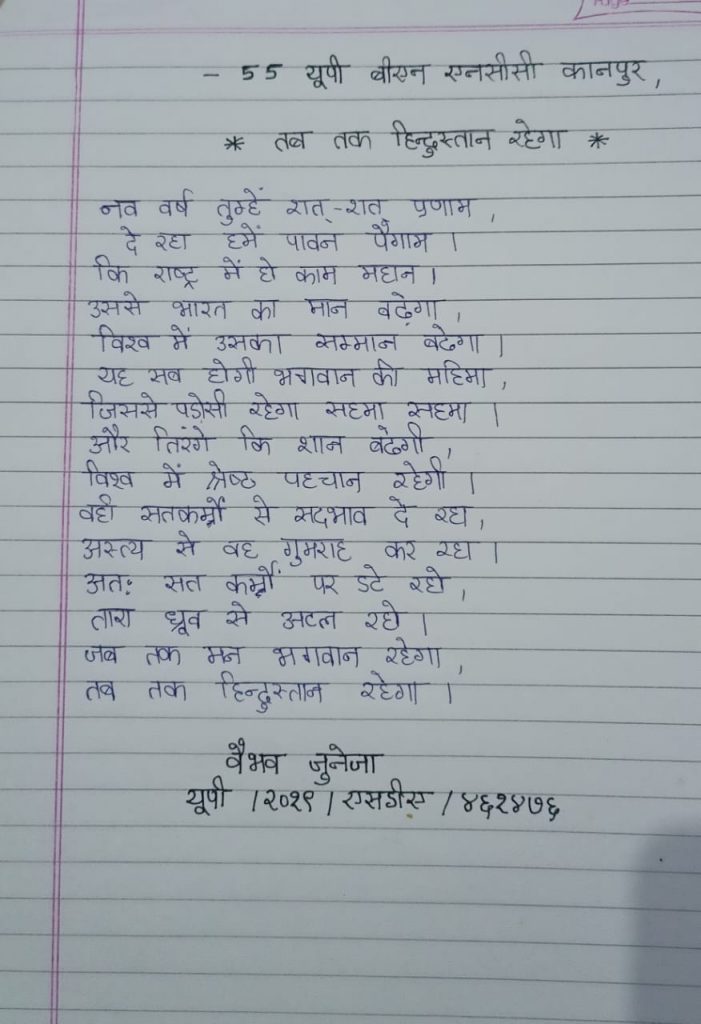 - 55 यूपी बीएन एनसीसी कानपुर,
* तब तक हिन्दुस्तान रहेगा *
नव वर्ष तुम्हें शत्-शत् प्रणाम,
दे रहा हमें पावन पैगाम।
कि राष्ट्र में हो काम महान।
उससे भारत का मान बढ़ेगा,
विश्व में उसका सम्मान बढेगा।
यह सब होगी भगवान की महिमा,
जिससे पड़ोसी रहेगा सहमा सहमा।
और तिरंगे कि शान बढेगी,
विश्व में श्रेष्ठ पहचान रहेगी।
वही सतकर्म्रो से सदभाव दे रहा,
अस्त्य से वह गुमराह कर रहा।
अतः सत कर्म्रों पर डटे रहो,
तारा ध्रूव से अटल रहो।
जब तक मन भगवान रहेगा,
तब तक हिन्दुस्तान रहेगा।
वैभव जुनेजा
यूपी /२०१९/ एसडीए /४६१४७६